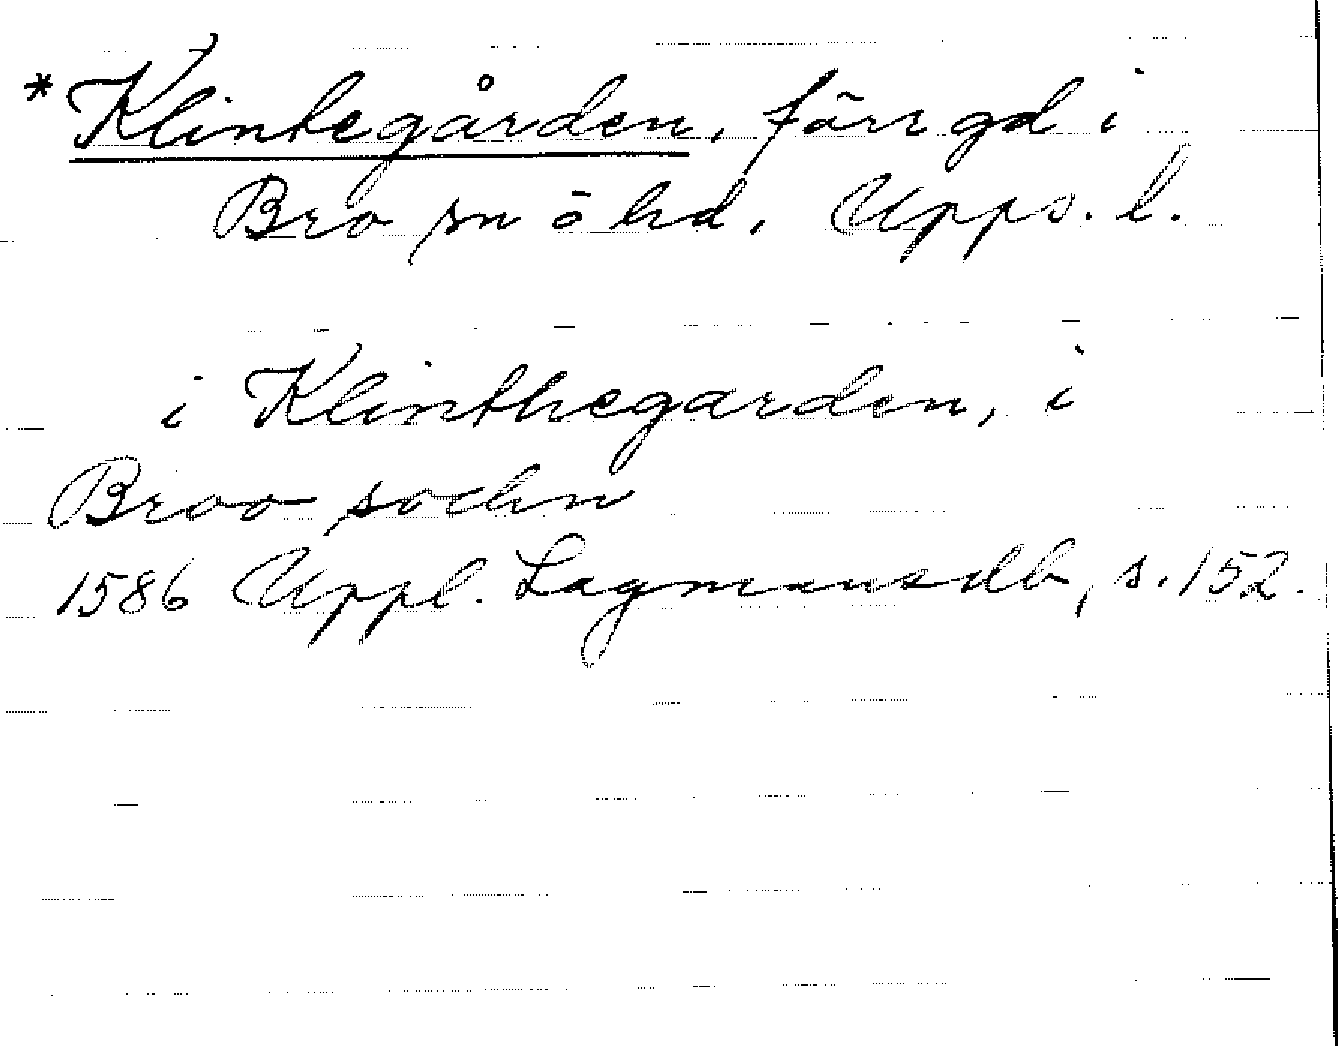 *Klintegården, förr gd i
Bro sn o hd, Upps. l.
i Klinthegarden, i
Broo sochn
1586 Uppl. Lagmansdb, s. 152.